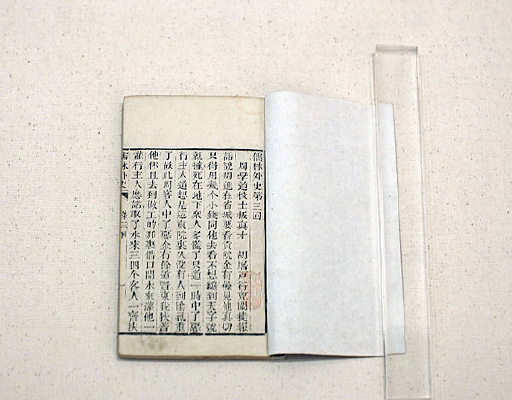 儒林外史第三回
周學道校士拔真才　胡屠戶行兇鬧捷報
話說周進在省城要看貢院金有餘見他真切
只得用幾個小錢同他去看不想纔到天字號
就撞死在地下眾人多慌了只道一時中了惡
行主人道想是這貢院裏久沒有人到陰氣重
了故此周客人中了惡金有餘道賢東我扶着
他你且去到做工的那裏借口開水來灌他一
灌行主人應諾取了水來三四個客人一齊扶
儒林外史　第三回